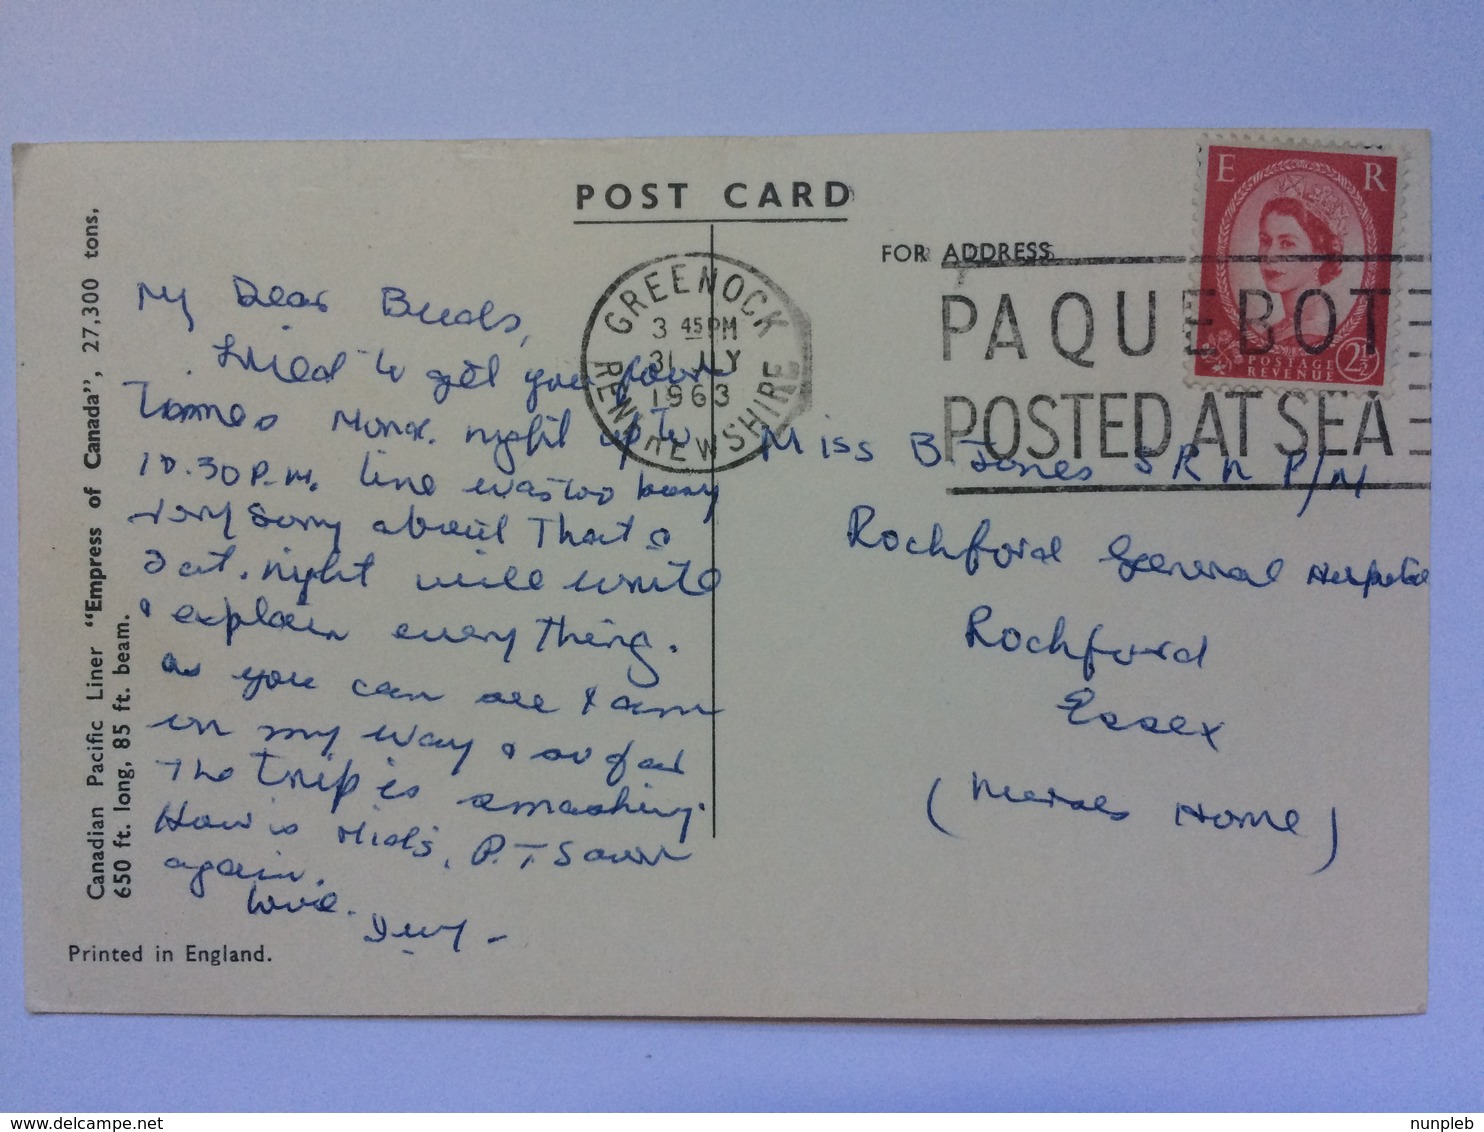 POST CARD
FOR ADDRESS
E R
POSTAGE
REVENUE 2½
GREENOCK
3 45 PM
31 JLY
1963
RENFREWSHIRE
PAQUEBOT
POSTED AT SEA
Canadian Pacific Liner "Empress of Canada", 27,300 tons,
650 ft. long, 85 ft. beam.
My Dear
tried to get you four
Times night up to
10.30 P.M. line was too busy
very sorry about that &
Sat. night will write
& explain everything.
as you can see I am
on my way & so far
The trip is smashing.
How is P.T.
again.
love.
Printed in England.
Miss B Jones S R N P/N
Rochford General Hospital
Rochford
Essex
(Nurses Home)
delcampe.net
nunpleb